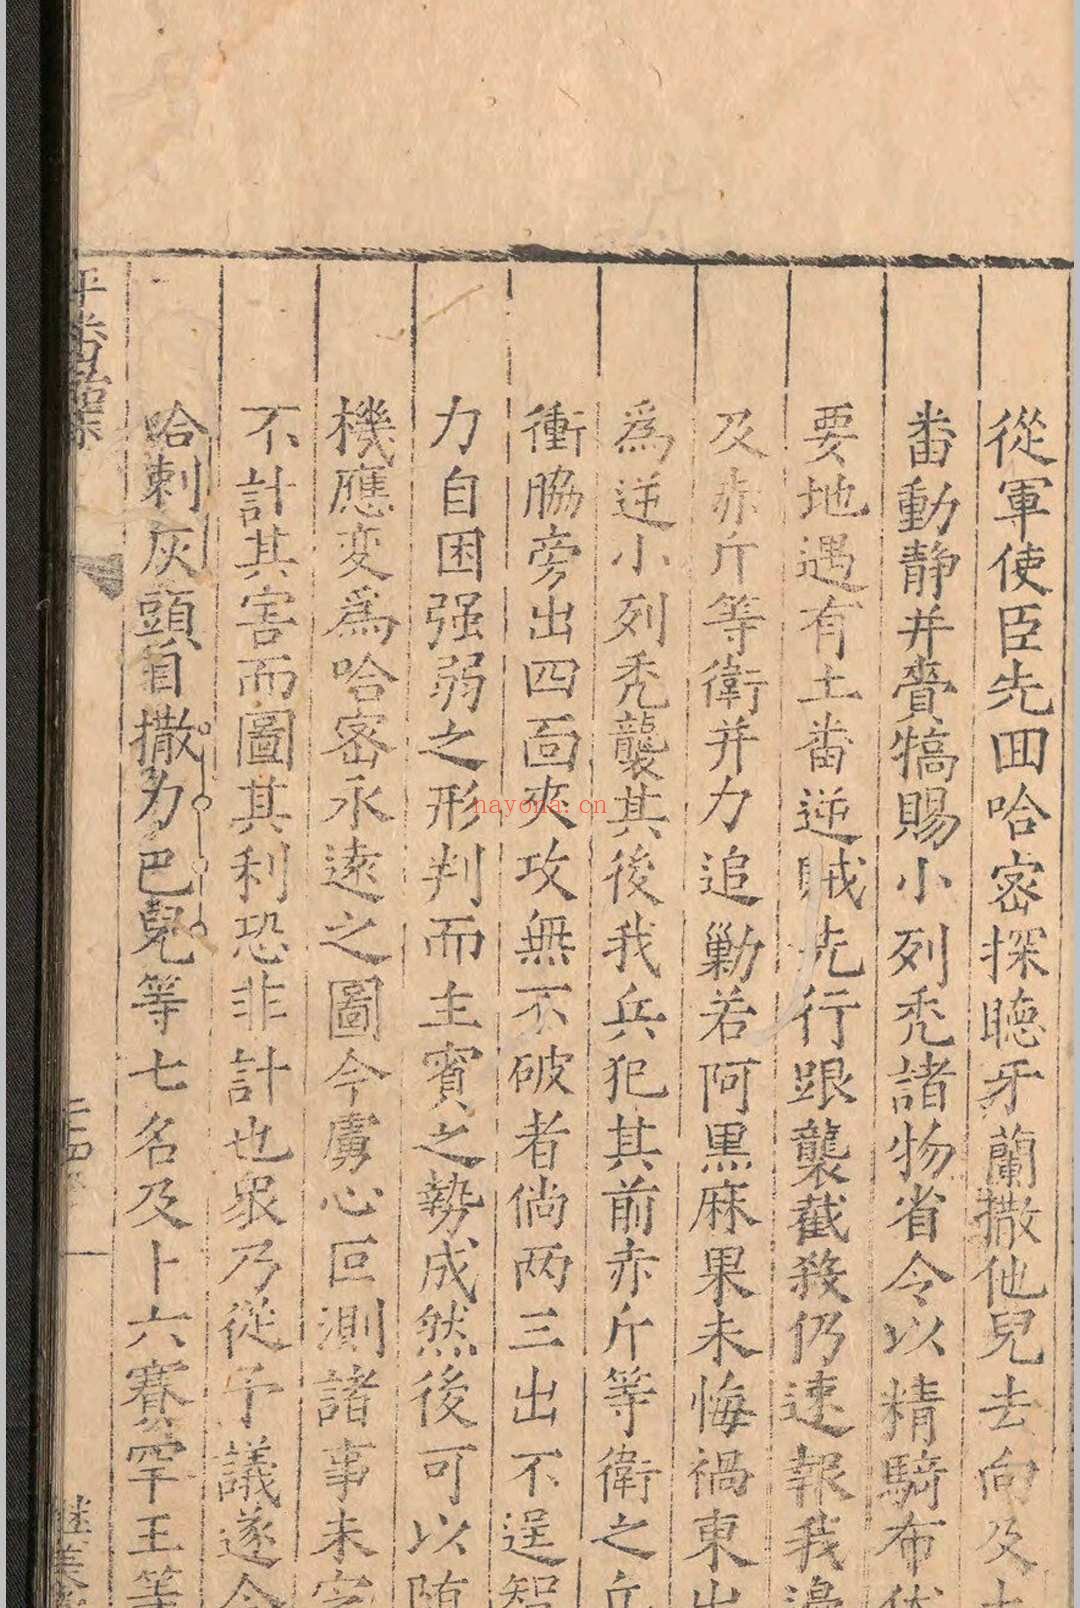 從軍使臣先回哈密探聴牙蘭撒他兒去向及
畨動静并賫犒賜小列秃諸物省令以精騎布伏
要地遇有土畨逆賊先行跟襲截殺仍速報我邊
及赤斤等衛并力追勦若阿黒麻果未悔禍東出
爲逆小列秃襲其後我兵犯其前赤斤等衛之兵
衝脇旁出四面夾攻無不破者倘两三出不逞智
力自困强弱之形判而主賔之勢成然後可以随
機應变爲哈密永逺之圖今虜心叵測諸事未定
不計其害而圖其利恐非計也衆乃從予議遂令
哈剌灰頭目撒力巴兒等七名及卜六賽罕王等
nayona.cn